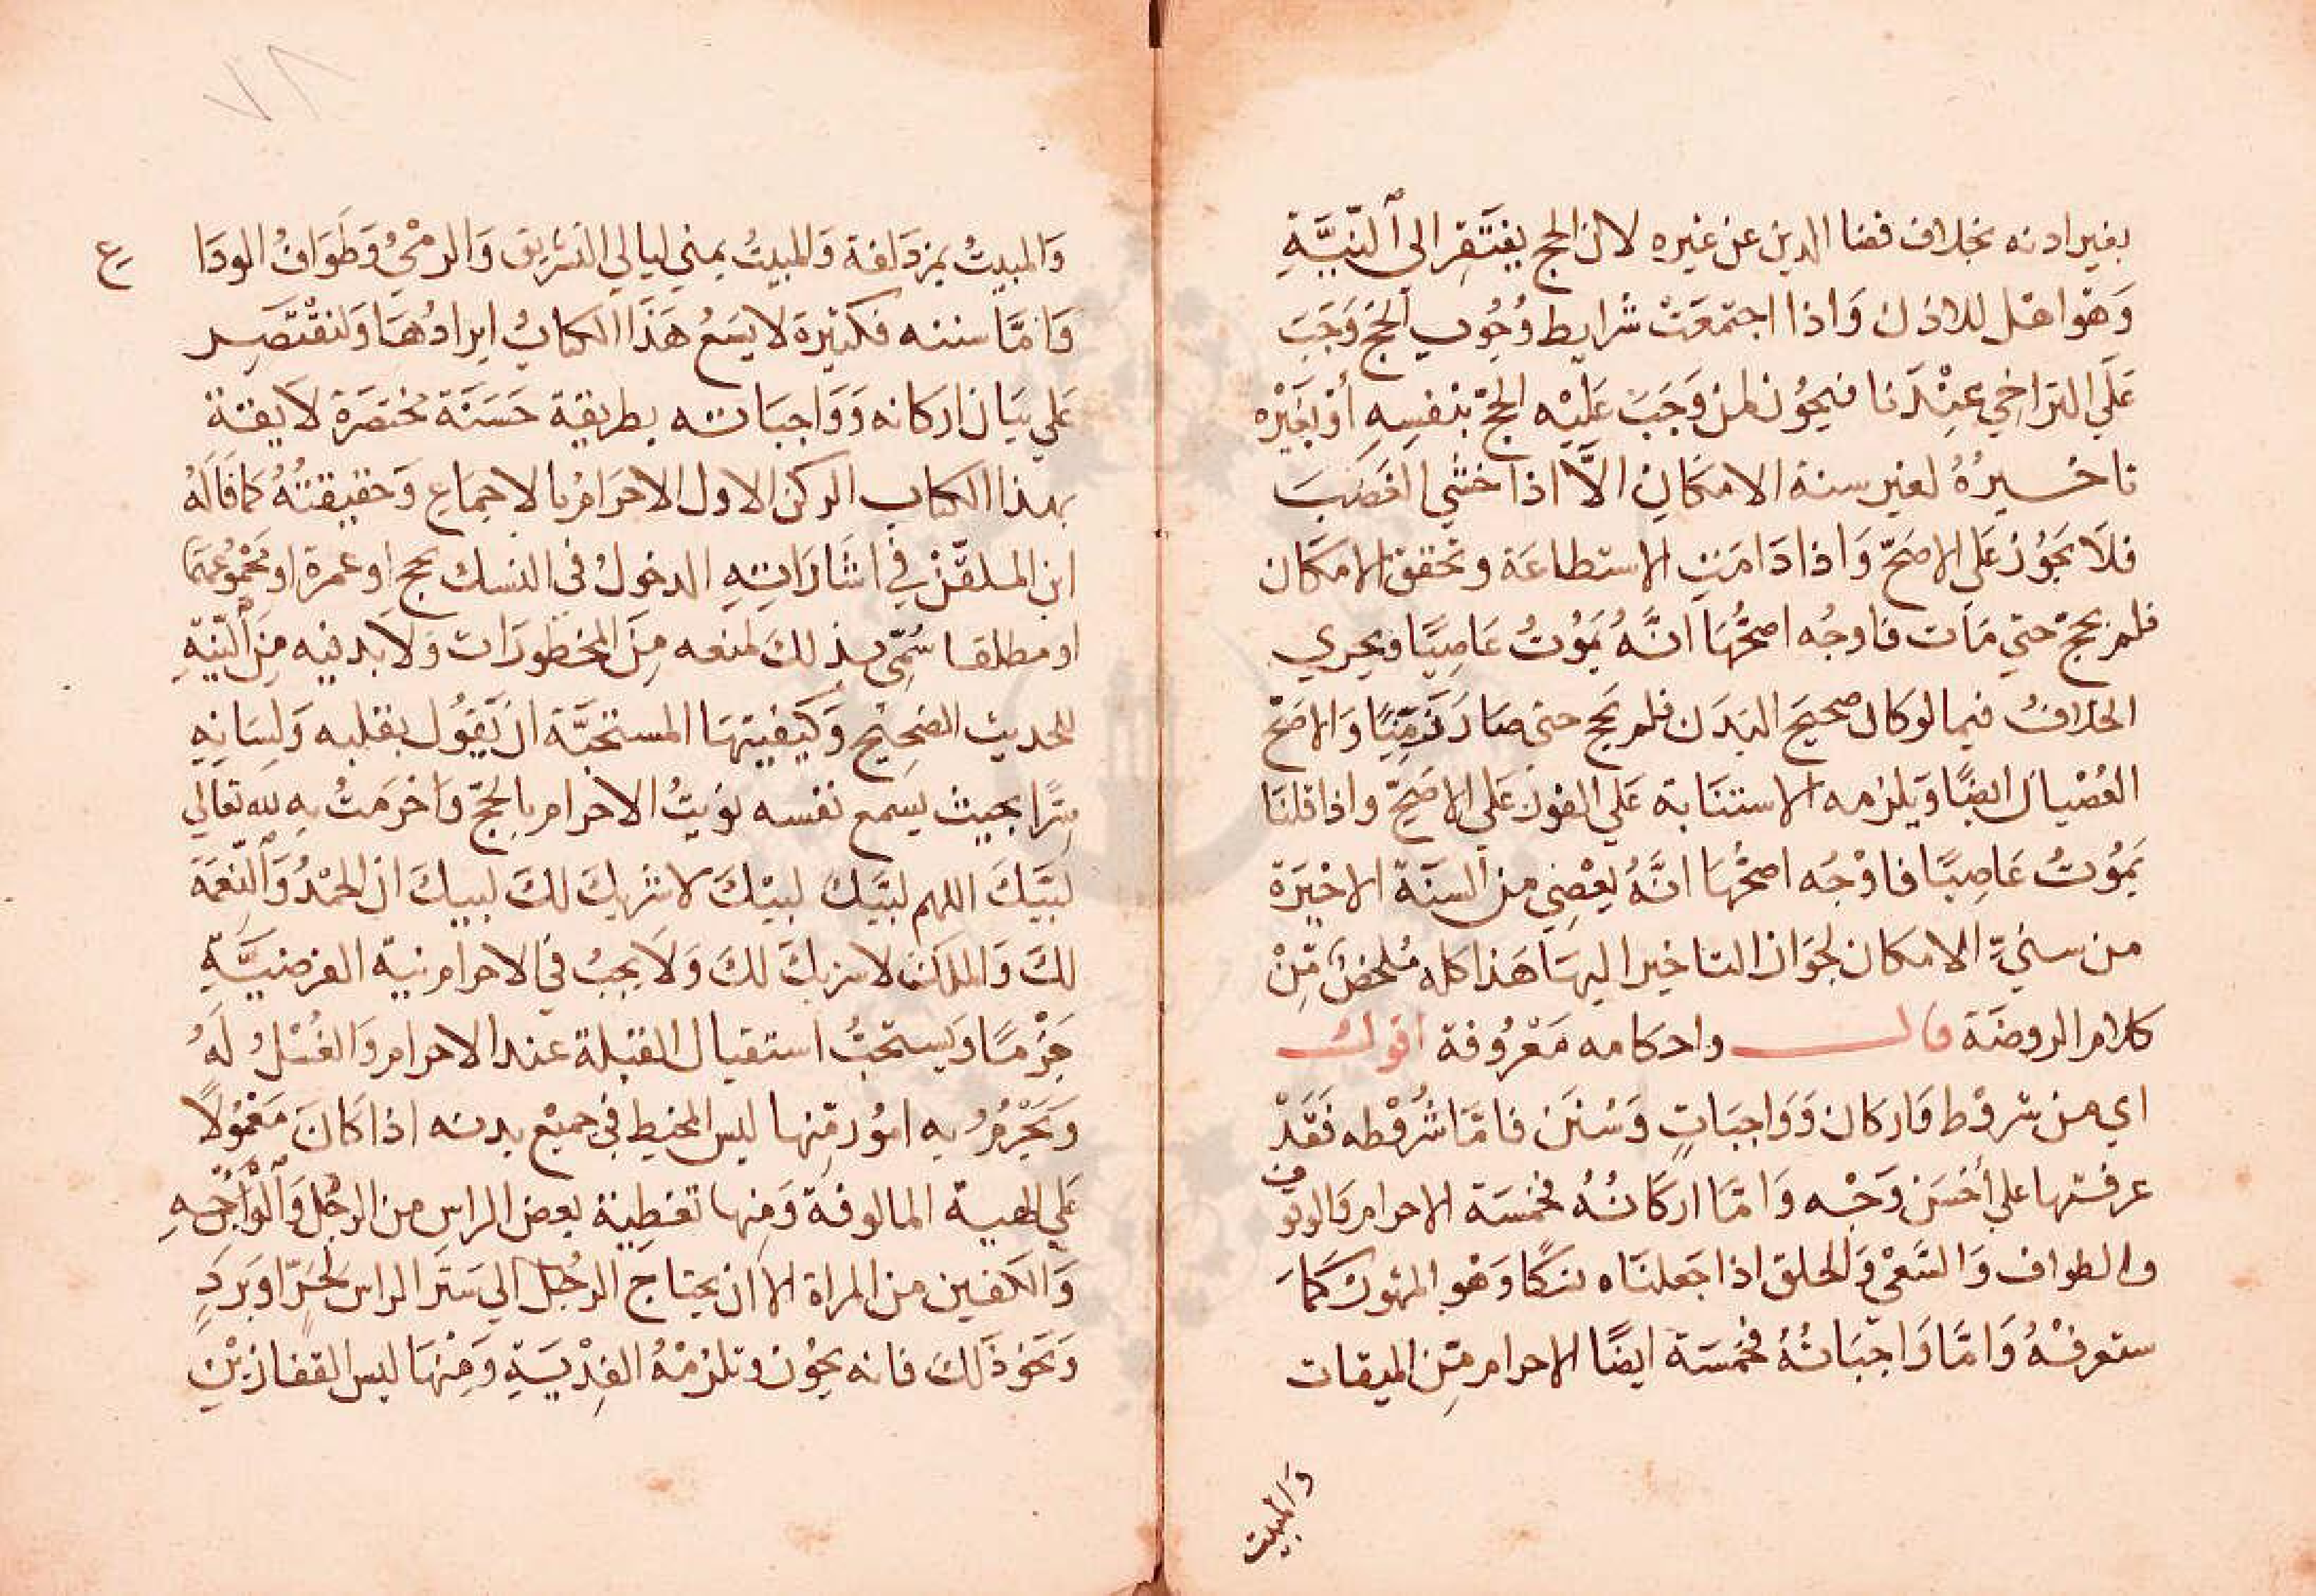 بغير اذنه بخلاف قضا الدين عن غيره لان الحج يفتقر الى النيَّةِ
وَهو اهل للاذن وَاذا اجتمعَتْ شرايط وُجُوب الحج وَجَبَ
عَلَي التراخِي عِنْدَنا فيجُوز لمن وَجَبَ عَلَيْه الحجّ بنفسِهِ أوْ بغَيْره
تاخيرُهُ لغير سنة الامكانِ الاَّ اذا خشي الغَضَبَ
فلاَ يَجوُز عَلى الاصَحّ وَاذا دَامَتِ الاستطاعَة وتحقق الامكَان
فلم يحجّ حتي مَات فاوجُه اصحُّهَا انَّهُ يَمُوْتُ عَاصِيًا ويجري
الخلافُ فيما لوكان صحيحَ البَدَن فلم يحج حتي صَارَ زَمِنًا وَالاصَحّ
العُصْيان ايضًا وَيلزمه الاستنَابة عَلَي الفور عَلَي الاصَحِّ واذا قلنَا
يَموُتُ عَاصِيًا فاوْجُه اصحُّهَا انَّهُ يعْصِي من السنَة الاخيَرة
من سنيِّ الامكان لجَوَاز التاخير اليهَا هَذا كله مُلخصٌ مِّنْ
كلام الروضَة قال واحكامه مَعْرُوفة اقول
اي من شروْط وَاركان وَوَاجبَاتٍ وَسُنَن فامَّا شُرُوْطه فَقَدْ
عرفتها علي أحْسَن وَجْه وَامَّا اركَانُهُ فخمسَة الاحرام وَالوقوف
والطواف وَالسَّعْي وَالحلق اذا جَعلنَاه نسكًا وَهْو المشهورُ كمَا
ستعرفُهُ وَامَّا وَاجبَاتُهُ فخمْسَة ايضًا الاحرام مِّن الميقات
وَالمبيت
وَالمبيتُ بمزدَلفة وَالمبيتُ بمني ليالي التشريق وَالرمْيُ وَطَوَافُ الودَاع
وَامَّا سننه فكثيرة لا يسَعُ هَذَا الكتابُ ايرادُهَا وَلنقْتصِر
عَلي بيَان اركانه وَوَاجبَاته بطريقة حَسَنَة مختصَرَة لاَ يقتة
بهذا الكتاب الركن الاول الاحرَامُ بالاجمَاع وَحقيقتُهُ كما قَالَهُ
ابن الملقّن في اشَارَاتِهِ الدخولُ في النسك بحج او عمرة او مَجْمُوعهمَا
او مطلقا سُمِّي بذلكَ لمنعه مِنَ المحظورَات وَلاَ بد فيه مِن النيّةِ
للحديث الصَحِيْحِ وَكيفيتهَا المستَحبَّة ان يَقُول بقلبه وَلِسَانِهِ
سِرًّا بحيث يسمع نفسه نوَيتُ الاحرام بالحجّ وَاحْرَمتُ بهِ لله تعَالي
لبَّيكَ اللهم لبَّيكَ لبيْكَ لا شريكَ لكَ لبيكَ ان الحَمْدُ وَالنّعمَة
لكَ وَالملك لا شريكَ لكَ وَلاَ يجبُ في الاحرام نية الفرضيَّةِ
جَزْمًا وَيستحبُّ استقبال القبْلة عند الاحرام وَالغُسْلُ لَهُ
وَيَحْرمُ به امُورٌ مِّنها لبس المخيط في جميْع بدنه اذا كَانَ مَعْمُولاً
عَلي الهيئة المالوفة وَمنها تغطِية بعض الراس من الرجُل وَالْوَجْهِ
وَالكفين من المراة الا ان يحتاج الرجُل الي سَتر الراس لحَرّ اوبَردٍ
وَنحَو ذَلكَ فانه يجوُز وتلزمْهُ الفِدْيَةِ وَمِنْهَا لبس القفازَيْن
٧٨